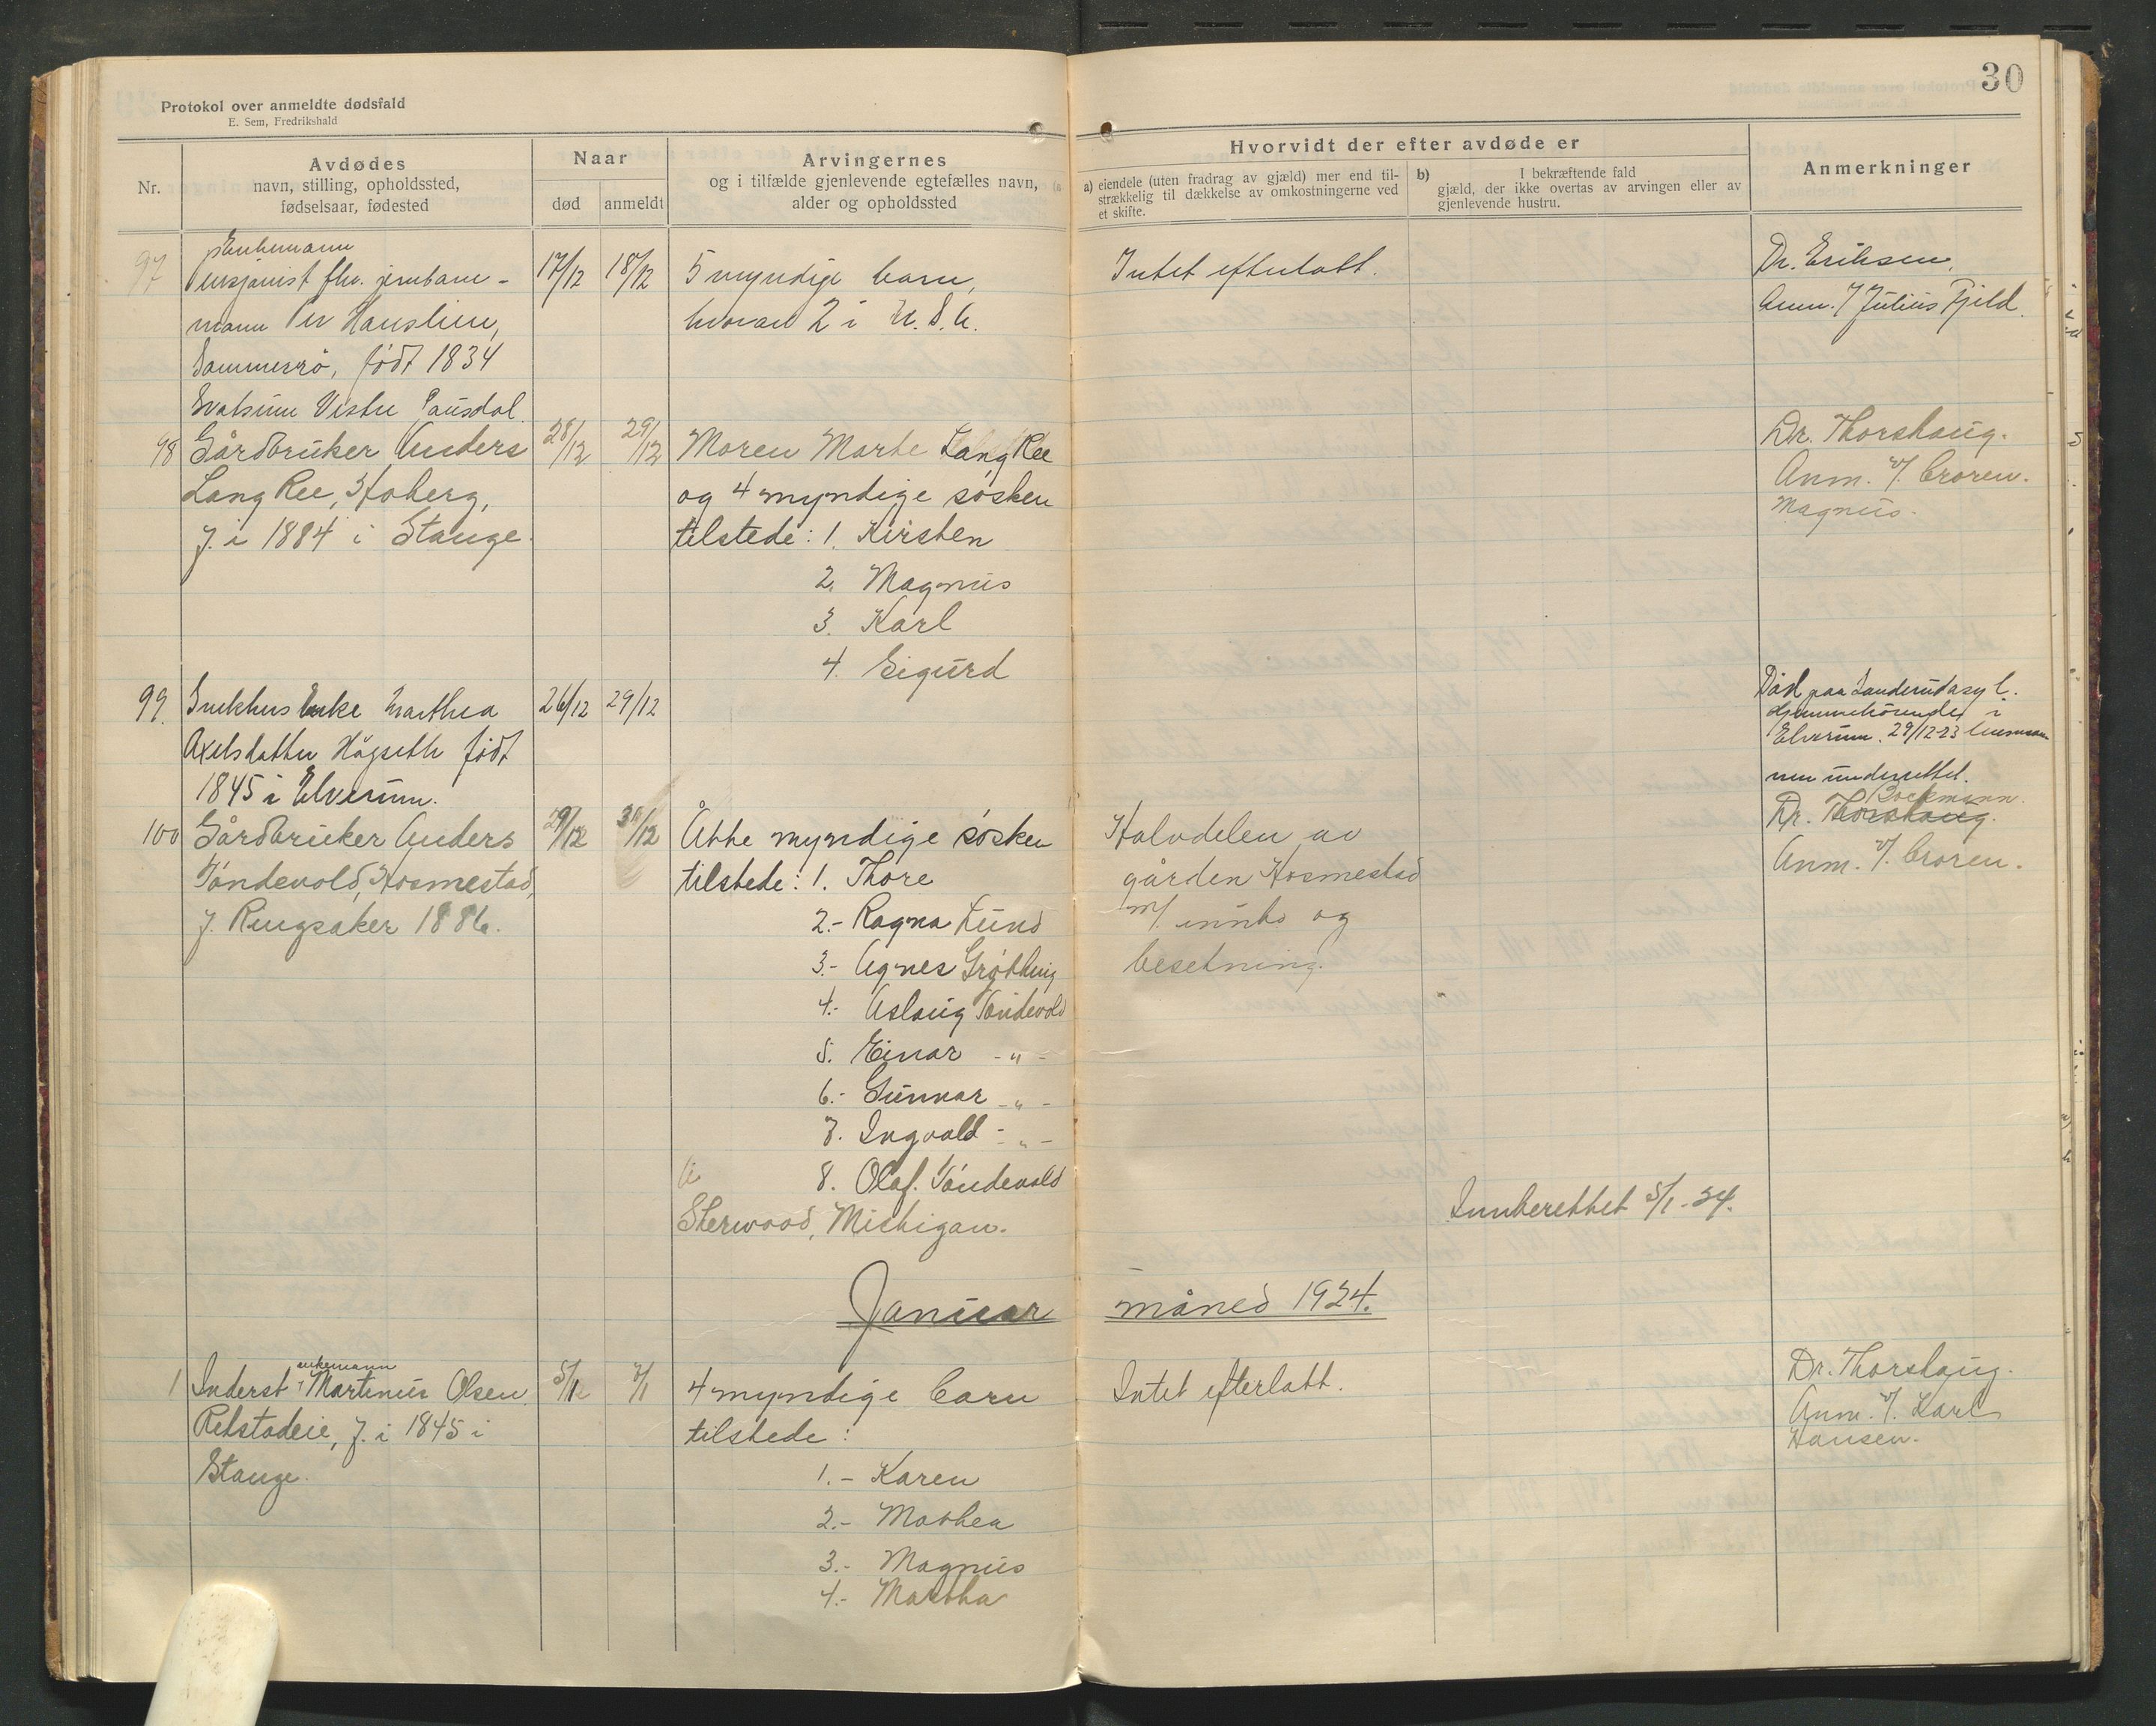 30
Protokol over anmeldte dødsfald
E. Sem, Fredrikshald
Nr.
Avdødes
navn, stilling, opholdssted,
fødselsaar, fødested
Naar
død
anmeldt
Arvingernes
og i tilfælde gjenlevende egtefælles navn,
alder og opholdssted
Hvorvidt der efter avdøde er
a) eiendele (uten fradrag av gjæld) mer end til-
strækkelig til dækkelse av omkostningerne ved
et skifte.
b)
I bekræftende fald
gjæld, der ikke overtas av arvingen eller av
gjenlevende hustru.
Anmerkninger
97
Enkemann
Pensjonist fhv. jernbane-
mann Per Hauslien,
Sammerrö, født 1834
Vestre Gausdal
17/12
18/12
5 myndige barn,
hvorav 2 i U. S. A.
Intet efterlatt.
Dr. Eriksen.
Anm. / Julius Fjeld.
98
Gårdbruker Anders
Lang Ree, Hoberg,
f. i 1884 i Stange.
28/12
29/12
Moren Marte Lang Ree
og 4 myndige søsken
tilstede: 1. Kirsten
2. Magnus
3. Karl
4. Sigurd
Dr. Thorshaug.
Anm. v/. broren.
Magnus.
99.
Enke Marthea
Axelsdatter Högseth født
1845 i Elverum.
26/12
29/12
Död paa Sanderudasyl.
Hjemmehörende i
Elverum. 29/12-23 lensmann
nen underrettet.
100
Gårdbruker Anders
Töndevold, Hosmestad,
f. Ringsaker 1886.
29/12
30/12
Åtte myndige søsken
tilstede: 1. Thore
2.- Ragna Lund
3.- Agnes Grøtting
4.- Aslaug Töndevold
5. Einar - " -
6.- Gunnar - " -
7. Ingvald - " -
8. Olaf. Töndevold
Sherwood, Michigan.
Halvdelen av
gården Hosmestad
m/. innbo og
besetning.
Innberettet 5/1-24.
Bockmann.
Dr. Thorshaug.
Anm. v/. broren.
Januar måned 1924.
1
enkemann
Inderst Martinus Olsen.
Retstadeie, f. i 1845 i
Stange.
5/1
7/1
4 myndige barn
tilstede:
1.- Karen
2.- Mathea
3.- Magnus
4.- Martha
Intet efterlatt.
Dr. Thorshaug.
Anm. v/. Karl
Hansen.